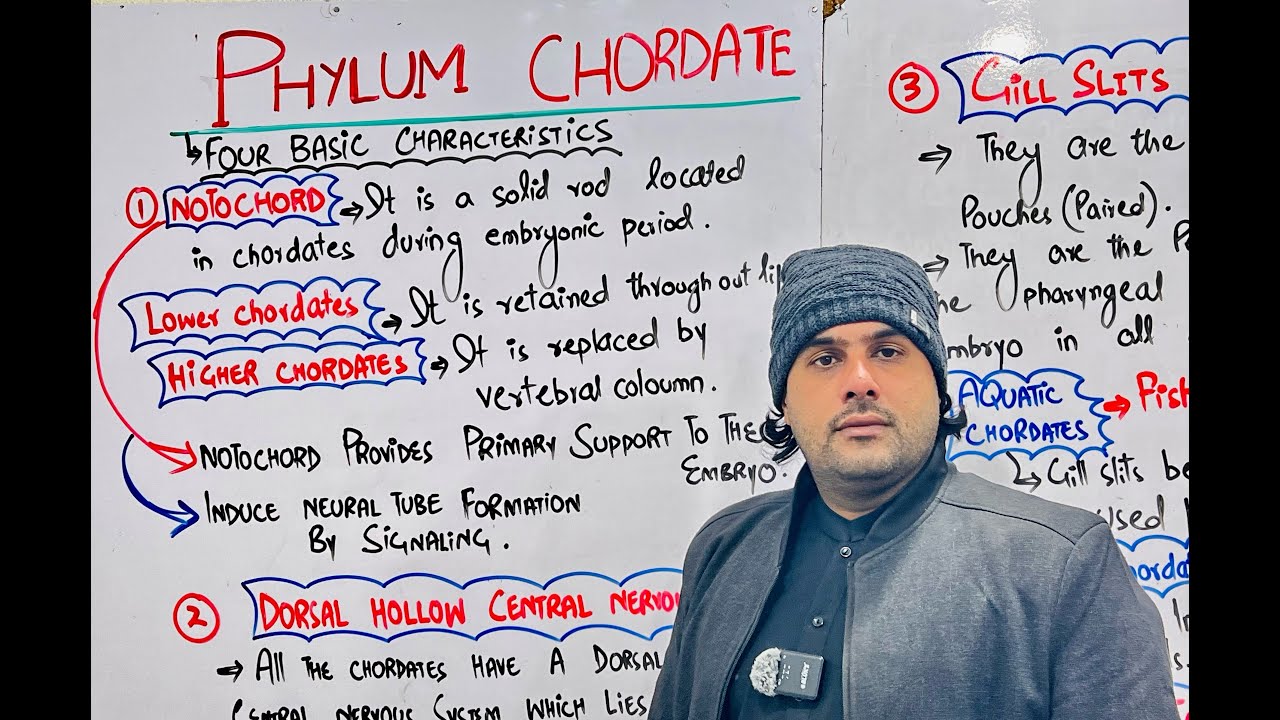 PHYLUM CHORDATE
FOUR BASIC CHARACTERISTICS
① NOTOCHORD ⇒ It is a solid rod located
in chordates during embryonic period.
Lower chordates ⇒ It is retained through out
HIGHER CHORDATES ⇒ It is replaced by
vertebral coloumn.
NOTOCHORD PROVIDES PRIMARY SUPPORT TO THE
EMBRYO.
INDUCE NEURAL TUBE FORMATION
BY SIGNALING.
② DORSAL HOLLOW CENTRAL
⇒ ALL THE CHORDATES HAVE A DORSAL
CENTRAL NERVOUS SYSTEM WHICH LIES
③ GILL SLITS
⇒ They are the
Pouches (Paired).
⇒ They are the
pharyngeal
in all
AQUATIC
CHORDATES ⇒
Gill slits